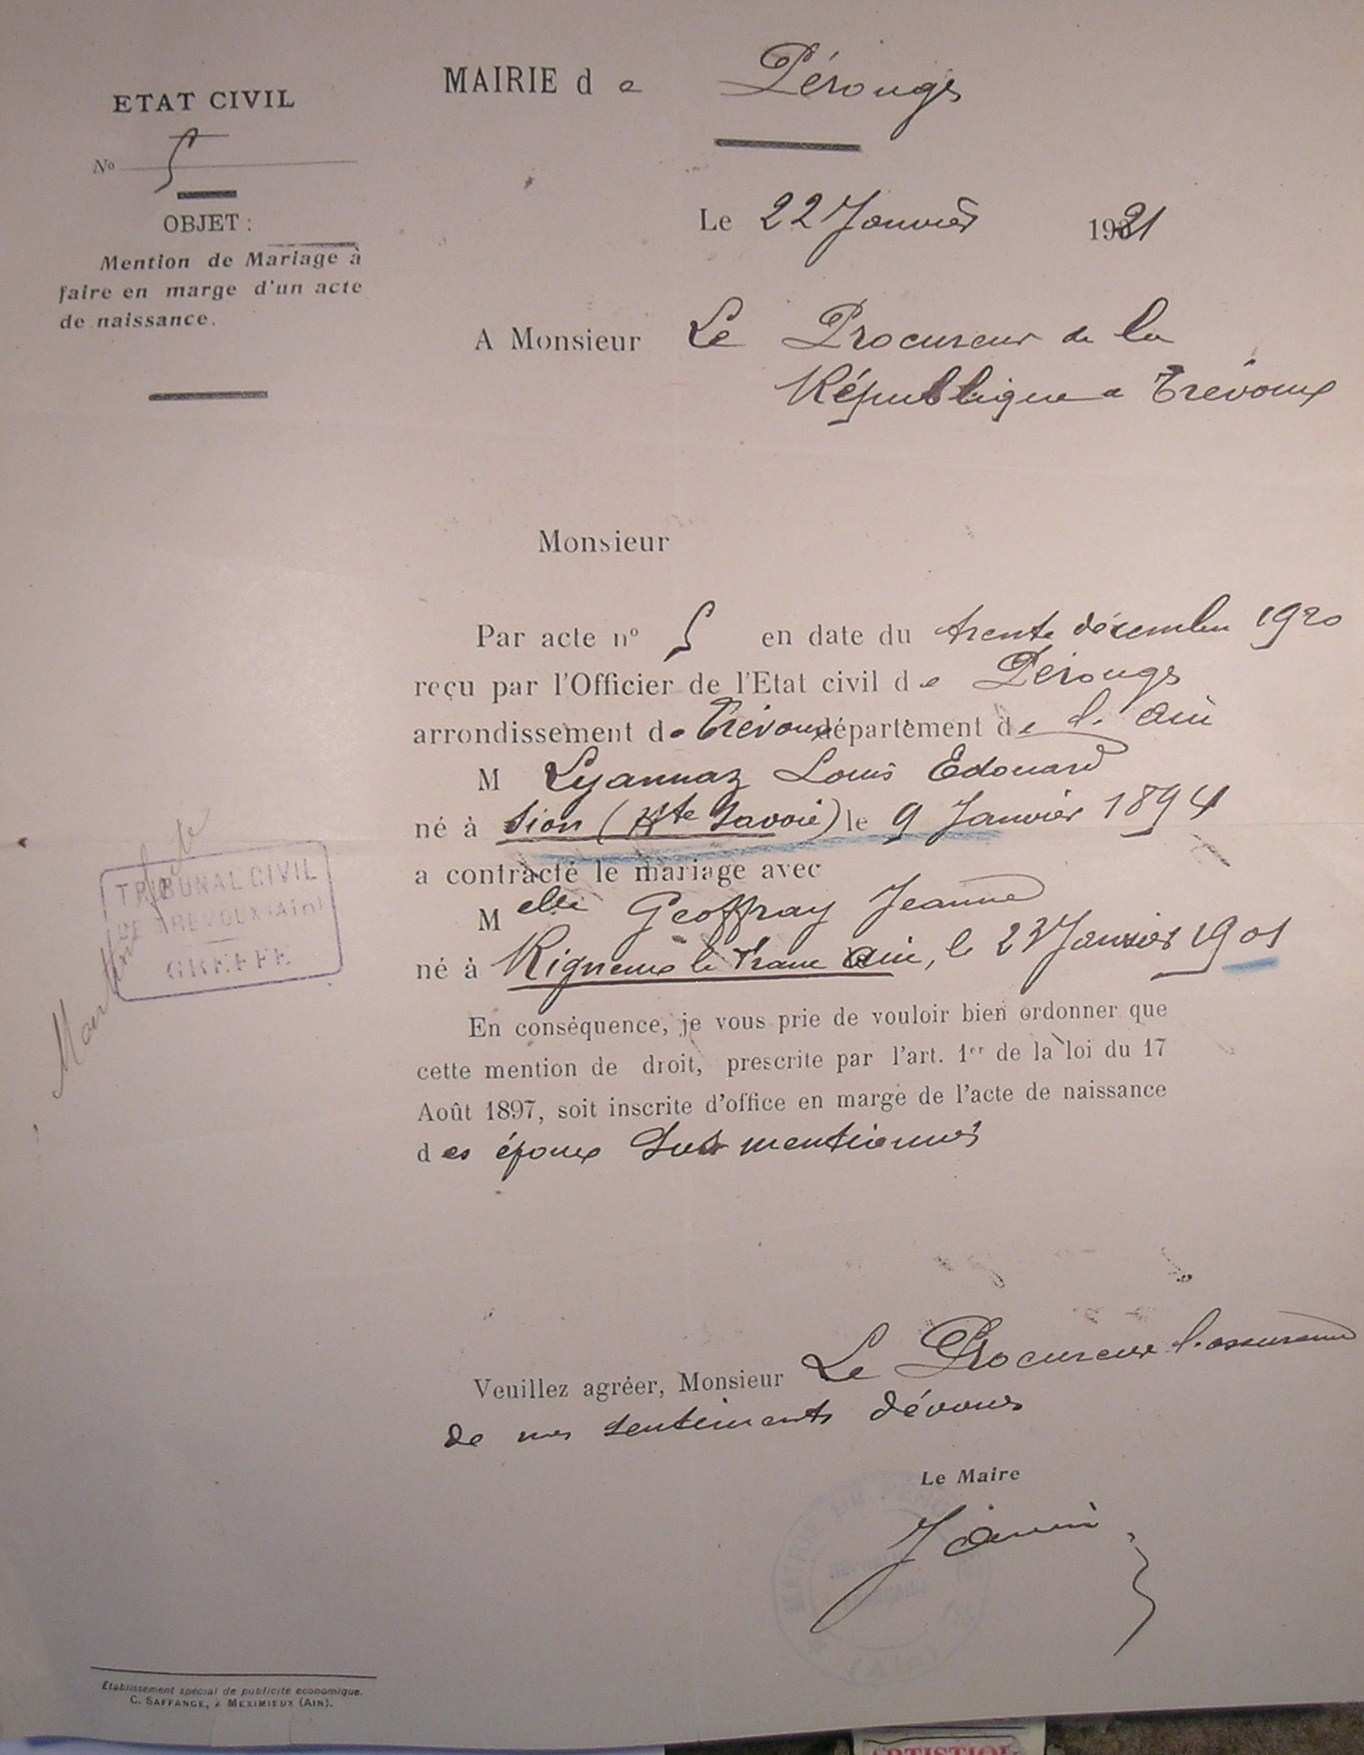 ETAT CIVIL
No 5
OBJET :
Mention de Mariage à
faire en marge d'un acte
de naissance.
MAIRIE de Pérouges
Le 22 Janvier 1921
A Monsieur Le Procureur de la
République a Trévoux
Monsieur
Par acte n° 5 en date du trente décembre 1920
reçu par l'Officier de l'Etat civil de Pérouges
arrondissement de Trévoux département de l'Ain
M Lyannaz Louis Edouard
né à Sion (Hte Savoie) le 9 Janvier 1894
a contracté le mariage avec
Melle Geoffray Jeanne
né à Rigneux le Franc Ain, le 23 Janvier 1901
En conséquence, je vous prie de vouloir bien ordonner que
cette mention de droit, prescrite par l'art. 1er de la loi du 17
Août 1897, soit inscrite d'office en marge de l'acte de naissance
des époux sus mentionnés
TRIBUNAL CIVIL
DE TREVOUX (Ain)
GREFFE
Veuillez agréer, Monsieur Le Procureur l'assurance
de mes sentiments dévoués
Le Maire
Etablissement spécial de publicité économique.
C. SAFFANGE, à MEXIMIEUX (AIN).